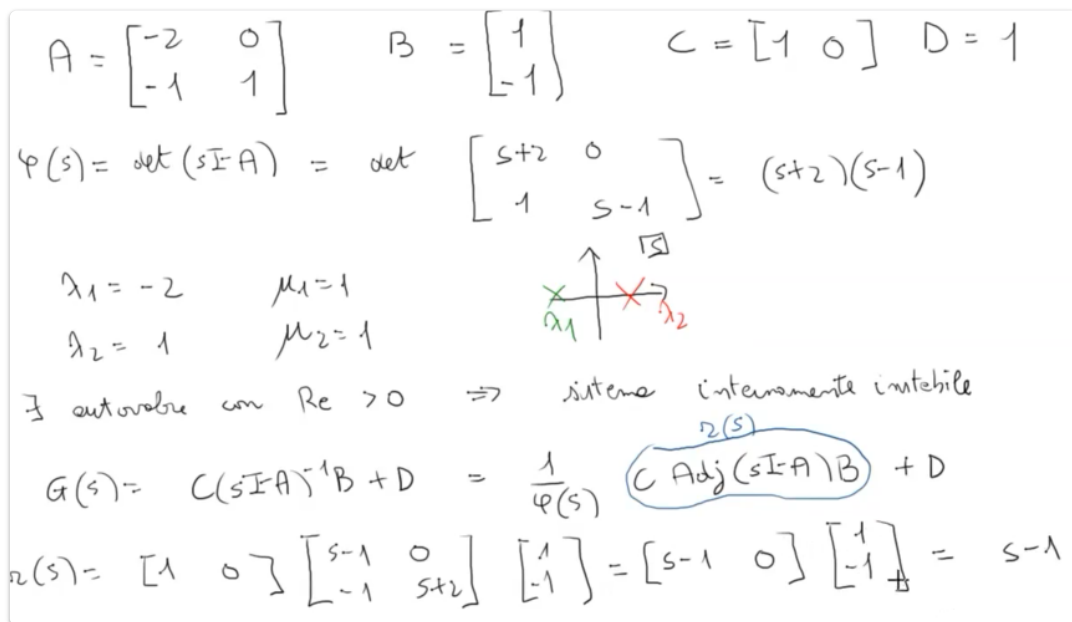 A = [-2 0; -1 1] B = [1; -1] C = [1 0] D = 1
φ(s) = det (sI-A) = det [s+2 0; 1 s-1] = (s+2)(s-1)
λ1 = -2 μ1 = 1
λ2 = 1 μ2 = 1
s
λ1 λ2
∃ autovalore con Re > 0 ⇒ sistema internamente instabile
r(s)
G(s) = C(sI-A)⁻¹B + D = 1/φ(s) C Adj(sI-A)B + D
r(s) = [1 0] [s-1 0; -1 s+2] [1; -1] = [s-1 0] [1; -1] = s-1